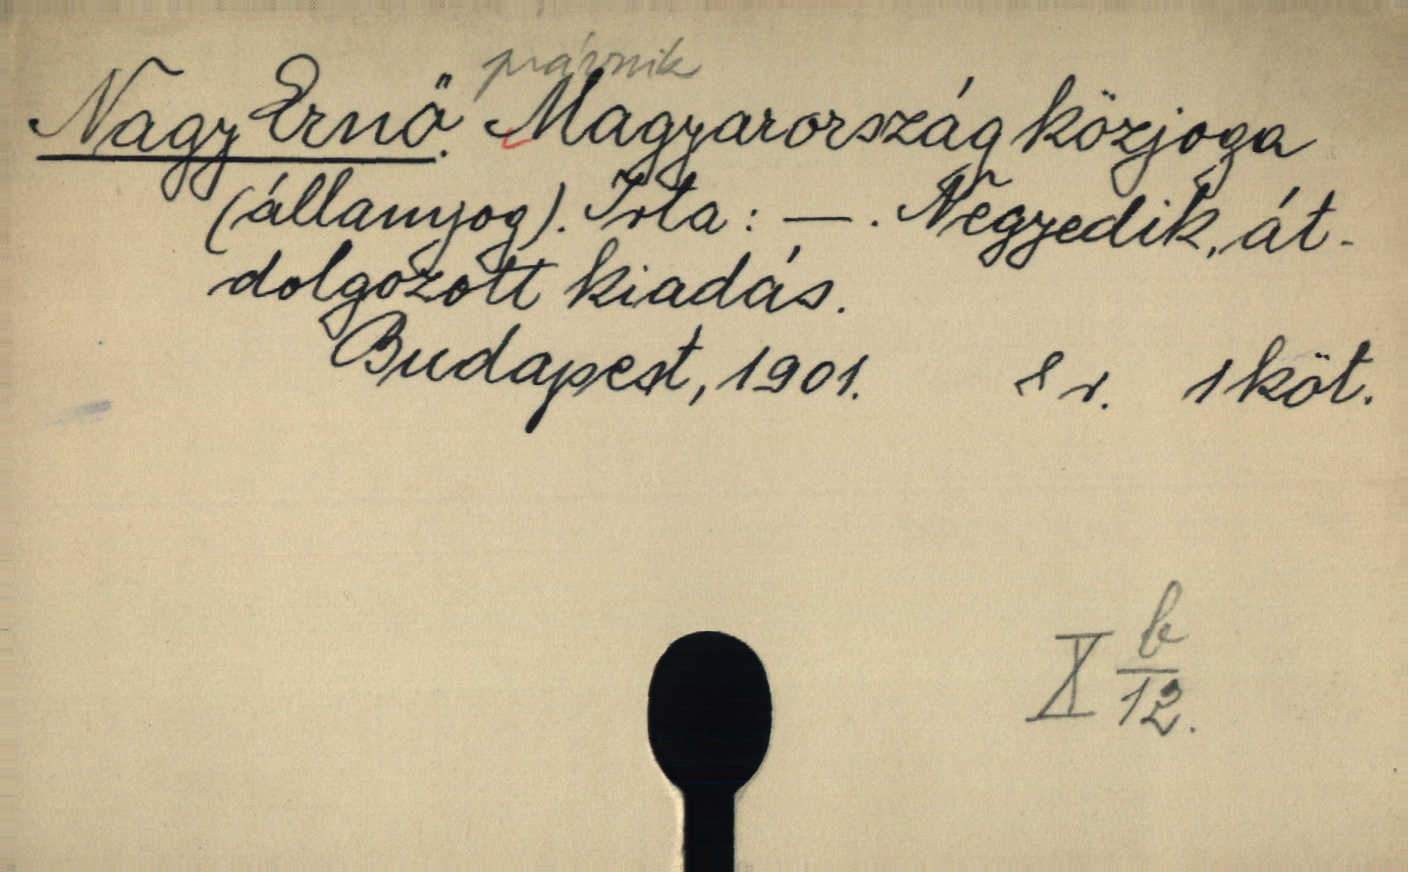 právnik
Nagy Ernő. Magyarország közjoga
(államjog). Irta: —. Negyedik, át-
dolgozott kiadás.
Budapest, 1901. 8 r. 1 köt.
X b/12.